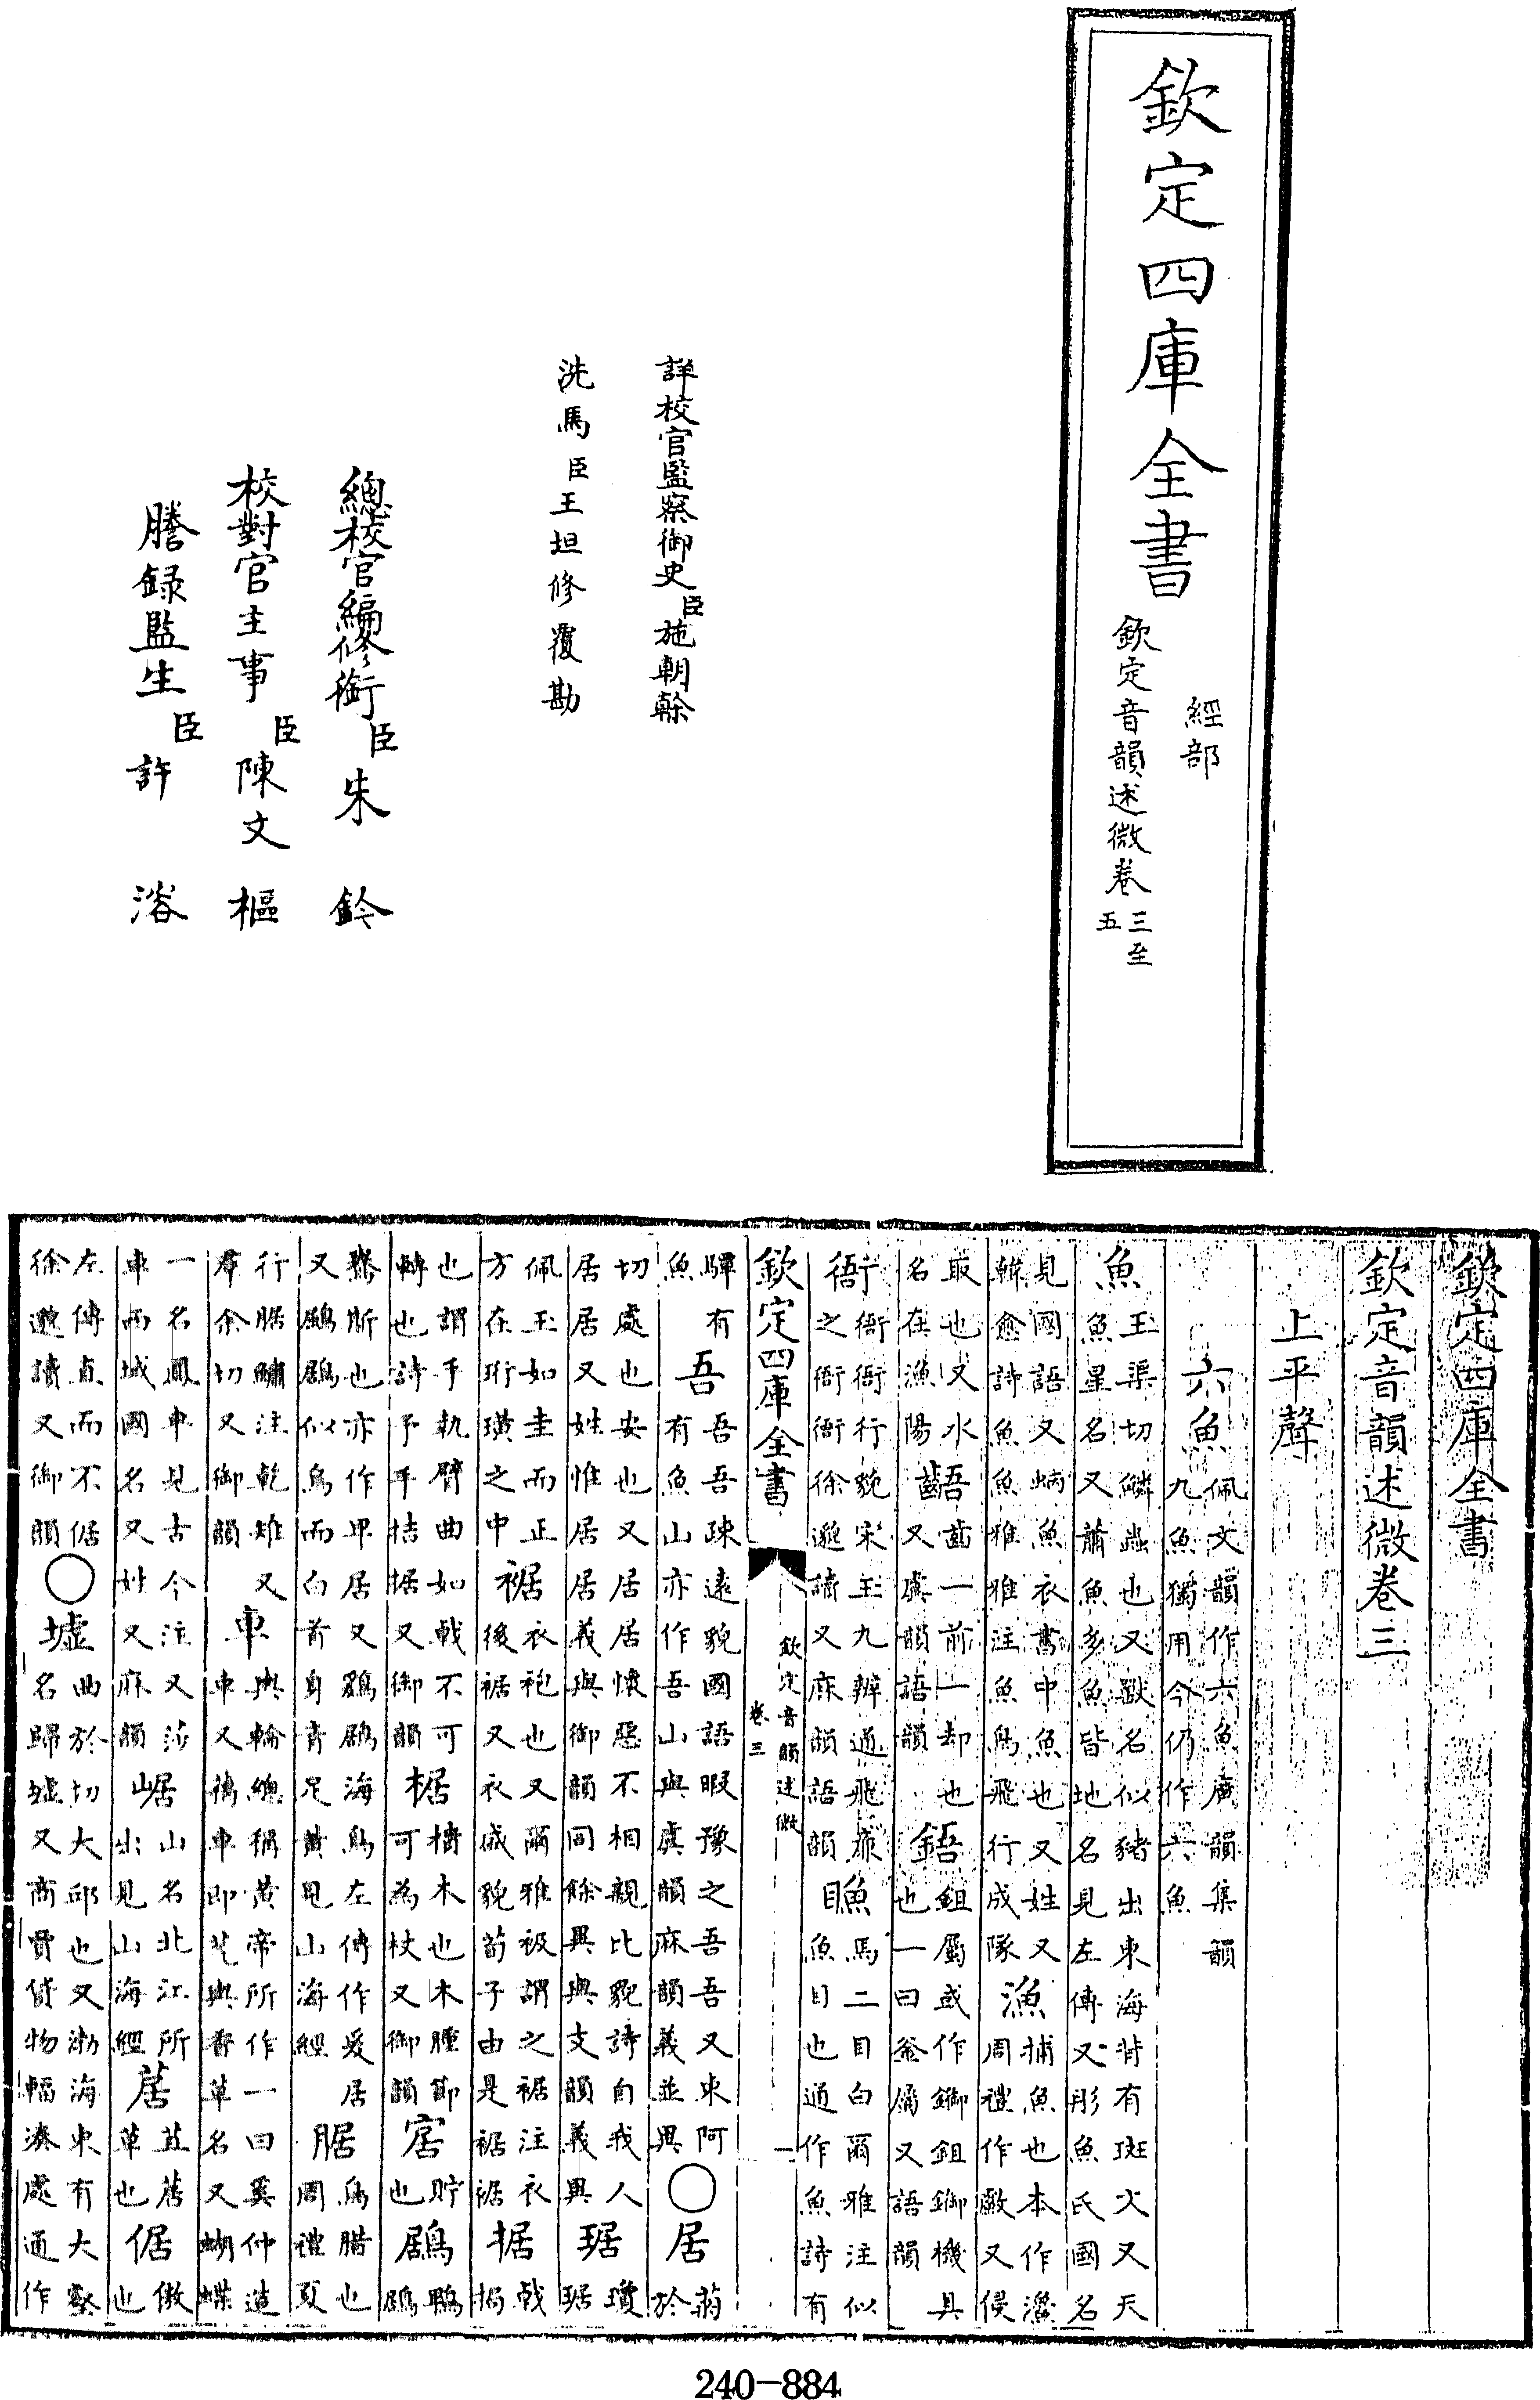 欽定四庫全書
經部
欽定音韻述微卷三至五
詳校官監察御史臣施朝榦
洗馬臣王坦修覆勘
總校官編修銜臣朱鈐
校對官主事臣陳文樞
謄錄監生臣許溶
欽定四庫全書
欽定音韻述微卷三
上平聲
六魚佩文韻作六魚廣韻集韻九魚獨用今仍作六魚
魚玉渠切鱗蟲也又獸名似豬出東海背有斑文又天魚星名又蕭魚多魚皆地名見左傳又彤魚氏國名
見國語又蛃魚衣書中魚也又姓又韓愈詩魚魚雅雅注魚鳥飛行成隊漁捕魚也本作周禮作䱷又侵
取也又水名在漁陽齬齒一前一却也又虞韻語韻鋙鉏屬或作鋤鉏鋤機具也一曰釜屬又語韻
衙衙衙行貌宋玉九辯通飛廉之衙衙徐邈讀又麻韻語韻䁩馬二目白爾雅注似魚目也通作魚詩有
驒有魚吾吾吾疎遠貌國語暇豫之吾吾又東阿有魚山亦作吾山與虞韻麻韻義並異○居菊於
切處也安也又居居懷惡不相親比貌詩自我人居居又姓惟居居義與御韻同餘異與支韻義異琚瓊琚
佩玉如圭而正方在珩璜之中裾衣袍也又爾雅衱謂之裾注衣後裾又衣盛貌荀子由是裾裾据戟挶
也謂手執臂曲如戟不可轉也詩予手拮据又御韻椐樻木也木腫節可為杖又御韻䆽貯也鶋鴨鶋
鸒斯也亦作卑居又鶢鶋海鳥左傳作爰居又鶋鶋似鳥而白首身青足黃見山海經腒鳥腊也周禮夏
行腒鱐注乾雉又羣余切又御韻車輿輪總稱黃帝所作一曰奚仲造車又藒車即芞輿香草名又蝴蝶
一名鳳車見古今注又莎車兩城國名又姓又麻韻崌山名北江所出見山海經草也倨傲也
左傳直而不倨徐邈讀又御韻○墟曲於切大邱也又渤海東有大壑名歸墟又商賈貨物輻湊處通作
欽定四庫全書
欽定音韻述微
卷三
一
240-884